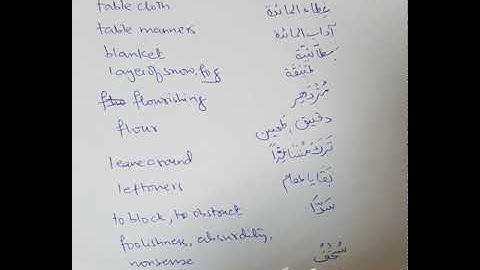 table cloth غطاء المائدة
table manners آداب المائدة
blanket
layer of snow, fog طبقة
flourishing مُزْدَهِر
flour دقيق، طحين
leave around
leftovers بَقَايا طعام
to block, to obstruct سَدَّ
foolishness, absurdity,
nonsense سُخْفٌ